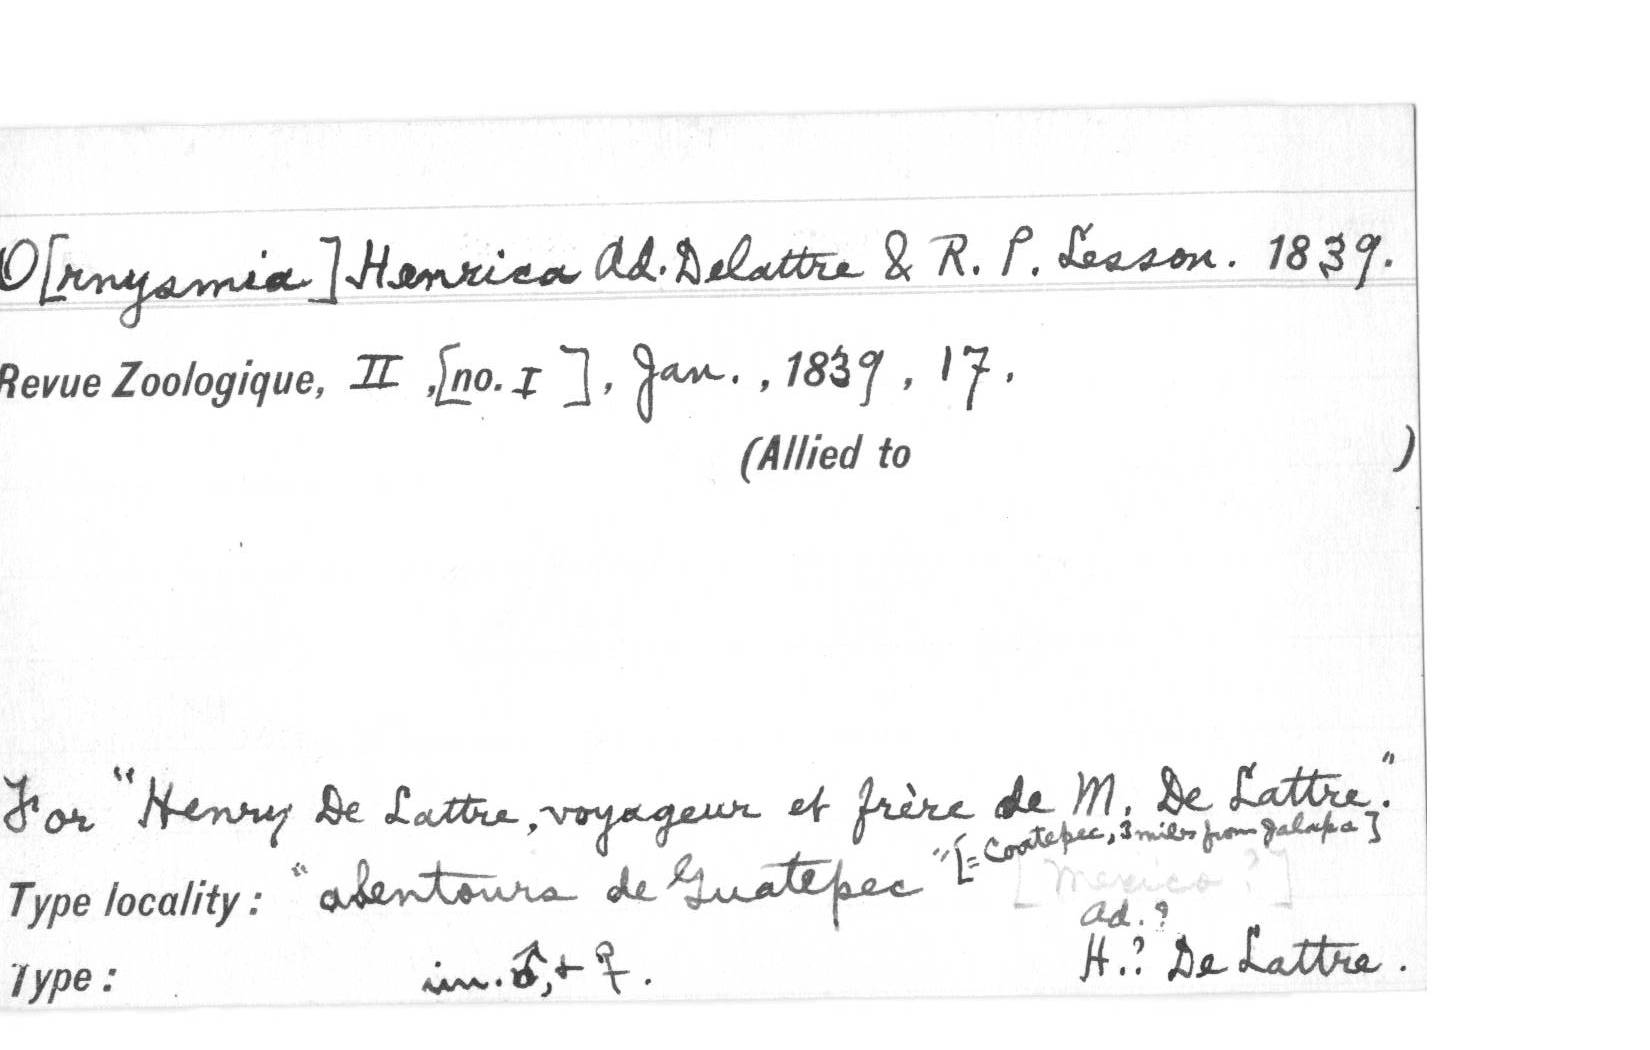 O[rnysmia] Henrica Ad. Delattre & R. P. Lesson. 1839.
Revue Zoologique, II ,[no. I ], Jan. , 1839 , 17 .
(Allied to )
For "Henry De Lattre, voyageur et frère de M. De Lattre."
"[= Coatepec, 3 miles from Jalapa]
Type locality : "alentours de Guatepec [Mexico ?]
Ad. ?
Type : im. ♂, + ♀. H.? De Lattre .